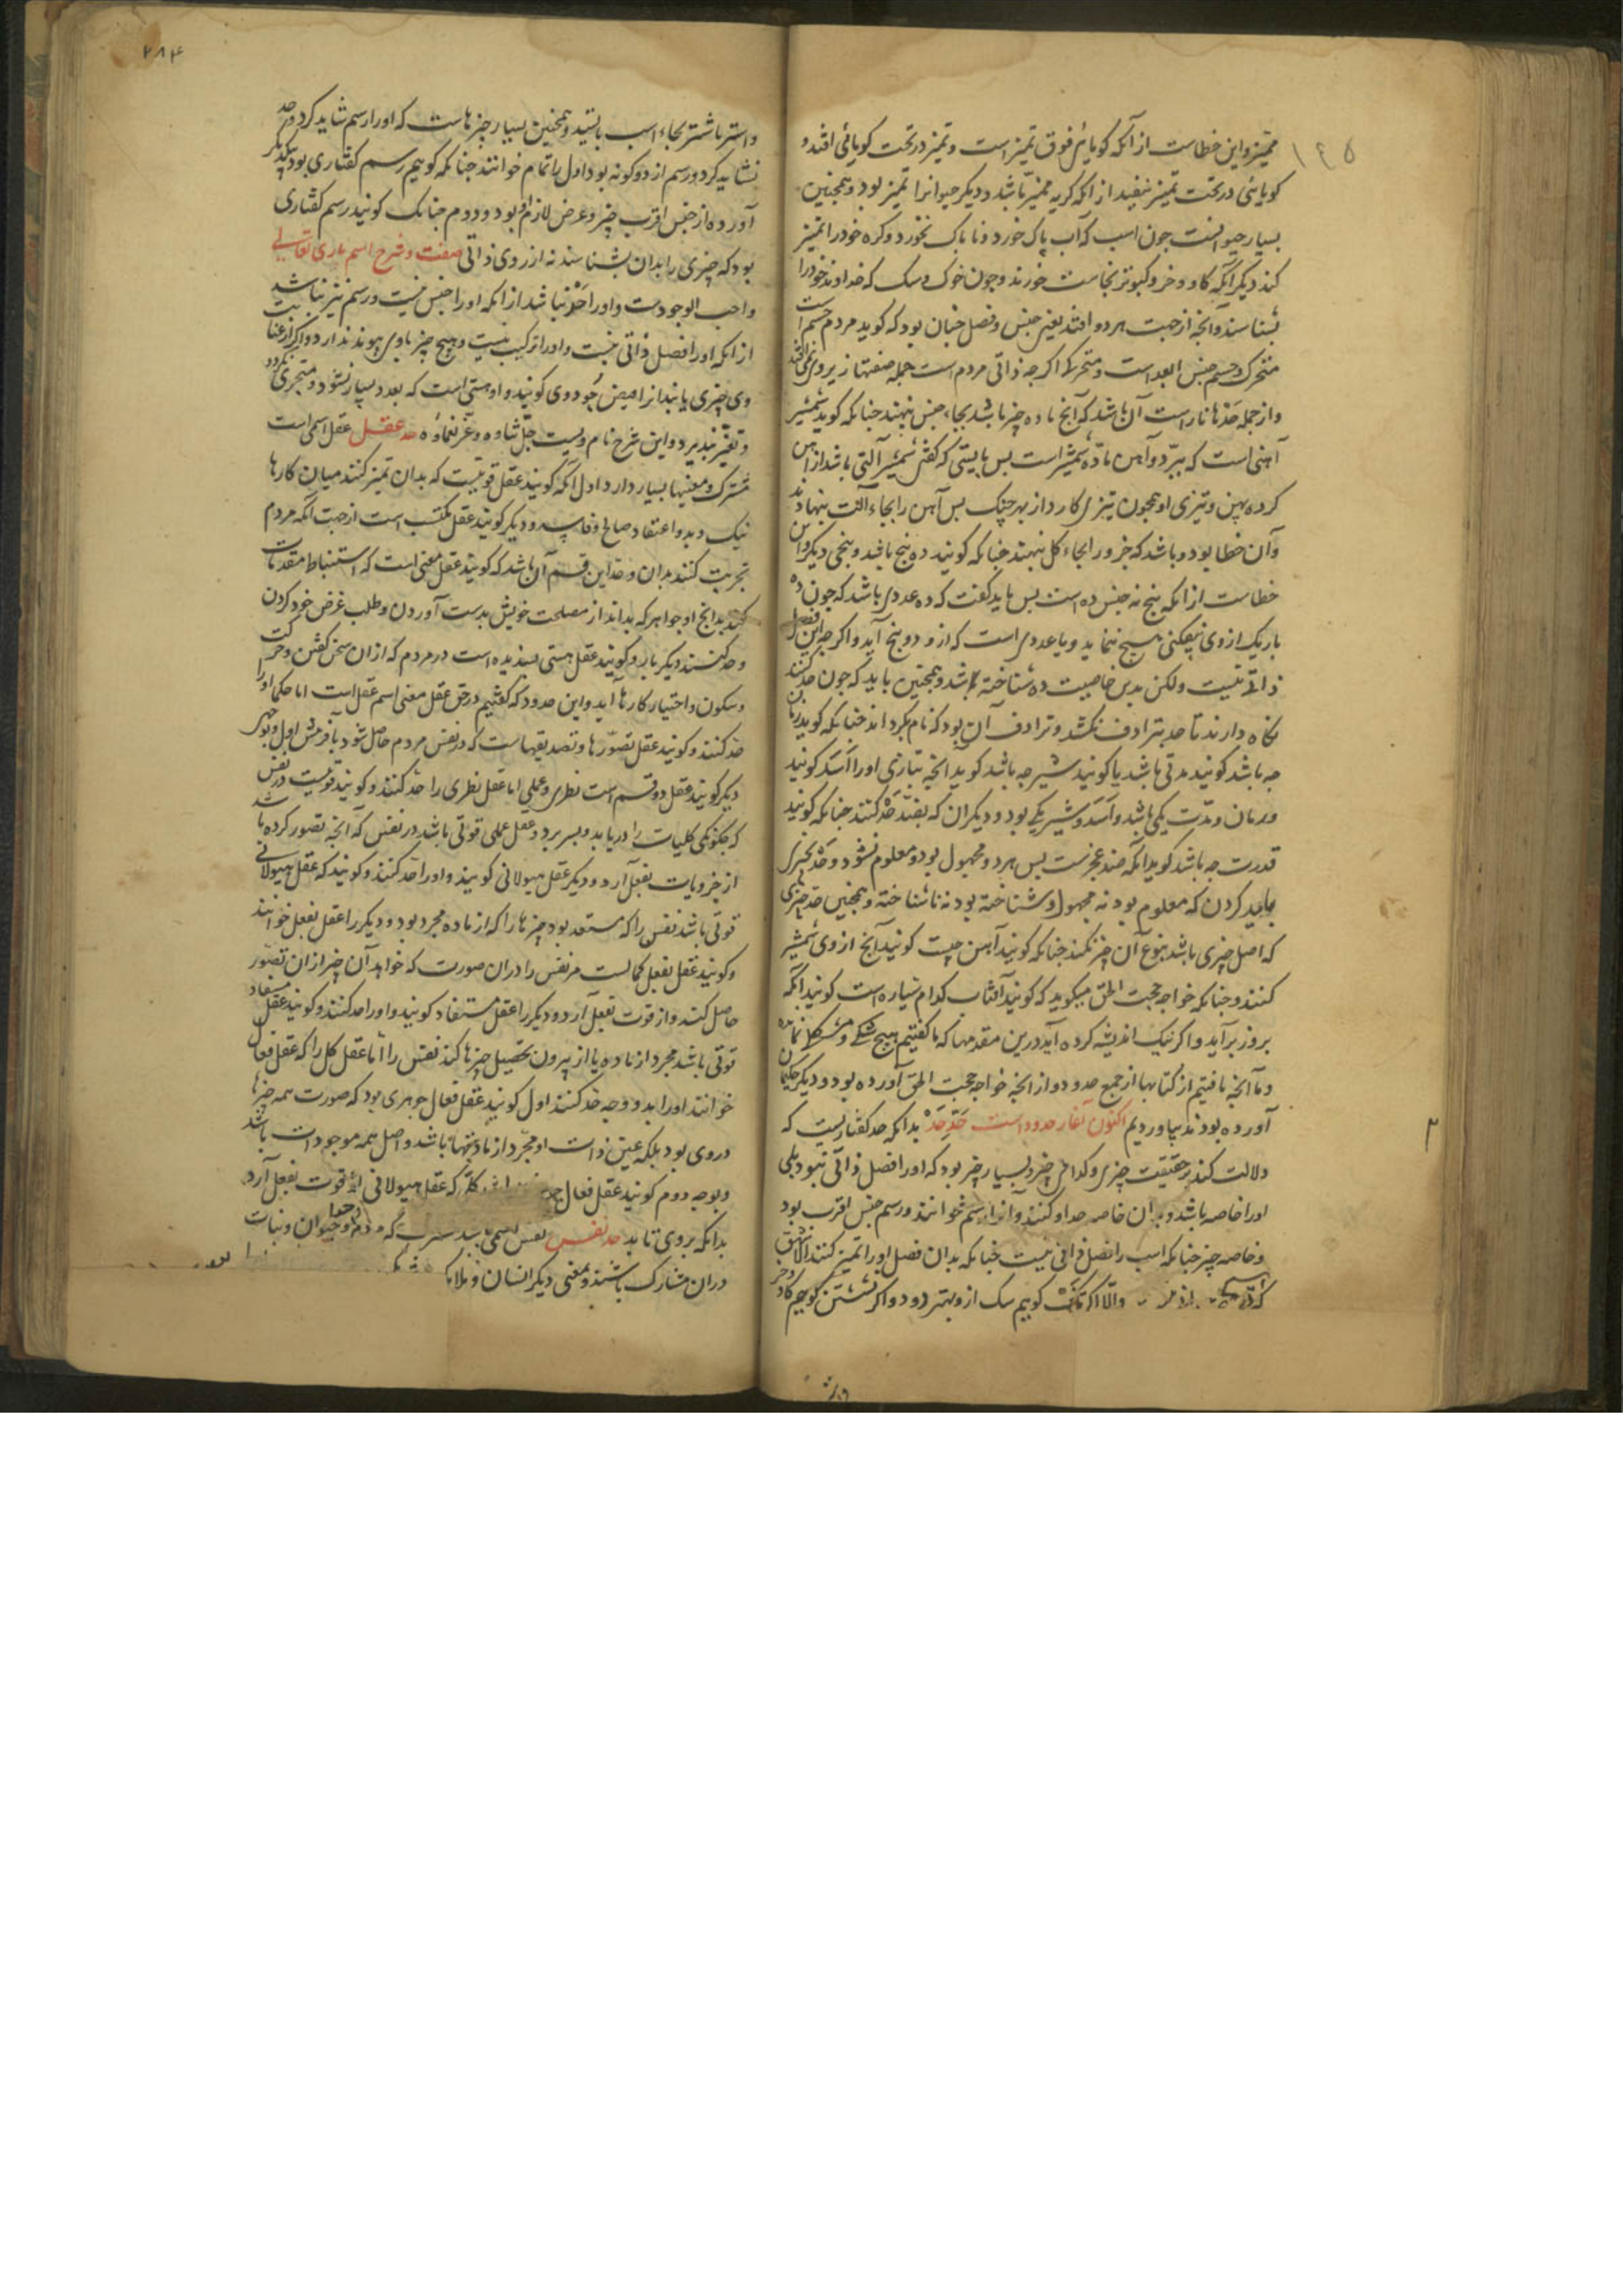 ١٤٥
ممیز و این خطاست از آنکه کویائی فوق تمیز است و تمیز در تحت کویائی افتد و
کویائی در تحت تمیز نیفتد از انکه کربه ممیز باشد و دیکر حیوانرا تمیز بود و همچنین
بسیار حیوانست جون اسب که آب پاک خورد و ناباک نخورد و کره خود را تمیز
کند دیکر آنکه کاو و خر و کبوتر نجاست خورند و جون خوک و سک که خداوند خود را
بشناسند و آنچه از جهت هر دو افتد یعنی جنس و فصل جنان بود که کوید مردم جسم است
متحرک و جسم جنس ابعد است و متحرک اکر جه ذاتی مردم است جمله صفتها زیر وی نمی افتد
و از جمله حدّها ناراست آن باشد که آنج ماده چیز باشد بجاء جنس بنهند جنانکه کوید شمشیر
آهنی است که ببرّد و آهن مادّه شمشیر است بس بایستی که کفتی شمشیر آلتی باشد از آهن
کرده پهن و تیزی او همجون تیزی کارد از بهر جنک بس آهن را بجاء آلت بنهاد
و آن خطا بود و باشد که جزو را بجاء کل بنهند جنانکه کویند ده پنج باشد و پنجی دیکر و این
خطاست از انکه پنج نه جنس ده است بس باید کفت که ده عددی باشد که جون ده
بار یک از وی بیفکنی هیچ نماید و یا عددی است که از و دو پنج آید و اکر جه این فصل
ذاتی نیست ولکن بدین خاصیت ده شناخته باشد و همجنین باید که جون حد کنند
نکاه دارند تا حد بترادف نکشد و ترادف آن بود که نام بکرداند جنانکه کوید زمان
جه باشد کویند مدتی باشد یا کویند شیر جه باشد کوید انچه بتازی او را اسد کویند
و زمان و مدّت یکی باشد و اَسَد و شیر یکی بود و دیکران که بضدّ حدّ کنند جنانکه کویند
قدرت جه باشد کوید انکه ضد عجزست بس هر دو مجهول بود و معلوم نشود و حدّ بچیزی
باید کردن که معلوم بود نه مجهول و شناخته بود نه ناشناخته و همجنین حد چیزی
که اصل چیزی باشد بنوع آن چیز نکند جنانکه کویند آهن چیست کویند آنج از وی شمشیر
کنند و جنانکه خواجه حجت الحق میکوید که کویند آفتاب کدام سیاره است کویند آنکه
بروز برآید و اکر نیک اندیشه کرده آید درین مقدمها که ما کفتیم هیچ شکی و مشکل نماند
و ما آنچه یافتیم از کتابها از جمع حدود و از انچه خواجه حجت الحق آورده بود و دیکر حکیمان
آورده بودند بیاوردیم اکنون آغاز حدود است حَدِّ حَدّ بدانکه حد کفتاریست که
دلالت کند بر حقیقت چیزی و کدامی چیز و بسیار چیز بود که او را فصل ذاتی نبود بلی
او را خاصه باشد و بدان خاصه حد او کنند و آنرا رسم خوانند و رسم جنس اقرب بود
و خاصه چیز جنانکه اسب را فصل ذاتی نیست جنانکه بدان فصل او را تمیز کنند
والّا اکر کویم سک ازو بهتر دود و اکر نشستن کویم کاو و خر
٢٨٤
و استر باشتر بجاء اسب بایستند و همجنین بسیار چیزهاست که او را رسم شاید کرد و حد
نشاید کرد و رسم از دو کونه بود اول را تمام خوانند جنانکه کوییم رسم کفتاری بود
آورده از جنس اقرب چیز و عرض لازم او بود و دوم جنانک کویند رسم کفتاری
بود که چیزی را بدان بشناسند نه از روی ذاتی صفت و شرح اسم باری تعالی
واجب الوجودست و او را حَدّ نباشد از انکه او را جنس نیست و رسم نیز نباشد
از انکه او را فصل ذاتی نیست و او را ترکیب نیست و هیچ چیز باوی پیوند ندارد
وی چیزی یابند انرا فیض جُود وی کویند و او هستی است که بعدد بسیار نشود و متجزی نکردد
و تغیّر نپذیرد و این شرح نام ویست جلّ ثناؤه و عزّ نعماؤه حد عقل عقل اسمی است
مشترک و معنیها بسیار دارد اول آنکه کویند عقل قوتیست که بدان تمیز کنند میان کارها
نیک و بد و اعتقاد صالح و فاسد و دیکر کویند عقل مکتسب است از جهت آنکه مردم
تجربت کنند بدان و حد این قسم آن باشد که کویند عقل معنی است که استنباط مقدمات
کند بدانج او جواهر که بداند از مصلحت خویش بدست آوردن و طلب غرض خود کردن
و حد کنند دیکر بار و کویند عقل هستی پسندیده است در مردم که از ان سخن کفتن و حرکت
و سکون و اختیار کارها آید و این حدود که کفتیم در حق عقل معنی اسم عقل است اما حکما او را
حد کنند و کویند عقل تصوّرها و تصدیقهاست که در نفس مردم حاصل شود بآفرینش اول و بوجهی
دیکر کویند عقل دو قسم است نظری و عملی اما عقل نظری را حد کنند و کویند قوتیست در نفس
که جکونکی کلیات را دریابد و بسر برد و عقل عملی قوتی باشد در نفس که آنچه تصور کرده باشد
از جزویات بفعل آرد و دیکر عقل هیولانی کویند و او را حد کنند و کویند که عقل هیولانی
قوتی باشد نفس را که مستعد بود چیزها را که از ماده مجرد بود و دیکر را عقل بفعل خوانند
و کویند عقل بفعل کمالست مر نفس را در ان صورت که خواهد آن چیز از ان تصوّر
حاصل کند و از قوت بفعل آرد و دیکر را عقل مستفاد کویند و او را حد کنند و کویند عقل مستفاد
قوتی باشد مجرد از ماده یا از بیرون تحصیل چیزها کند نفس را اما عقل کل را که عقل فعال
خوانند او را بدو وجه حد کنند اول کویند عقل فعال جوهری بود که صورت همه چیزها
در وی بود بلکه عین ذات او مجرّد از مادّتها باشد و اصل همه موجودات باشد
و بوجه دوم کویند عقل فعال که عقل هیولانی از قوت بفعل آرد
بدانکه بروی تابد حد نفس نفس اسمی که مردم و حیوان و نبات
در ان مشارک باشند و بمعنی دیکر انسان و ملایکه